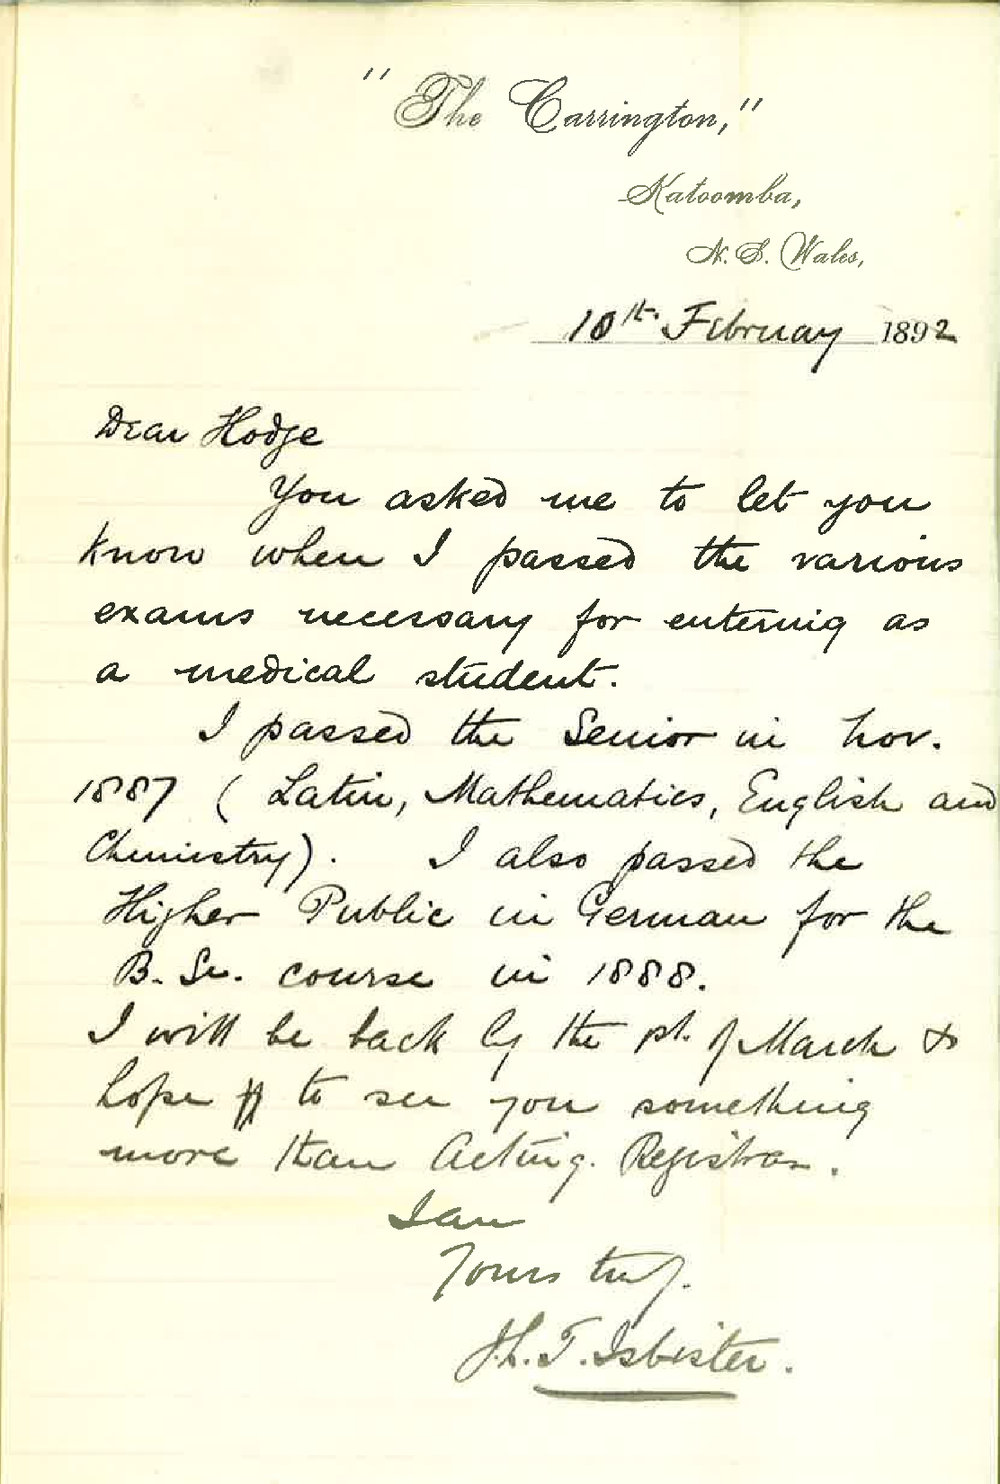 "The Carrington,"
Katoomba,
N. S. Wales,
10th February 1892
Dear Hodge
You asked me to let you
know when I passed the various
exams necessary for entering as
a medical student.
I passed the Senior in Nov.
1887 (Latin, Mathematics, English and
Chemistry). I also passed the
Higher Public in German for the
B. Sc. course in 1888.
I will be back by the 1st. of March &
hope to see you something
more than Acting. Registrar.
I am
Yours truly.
J. L. T. Isbister.